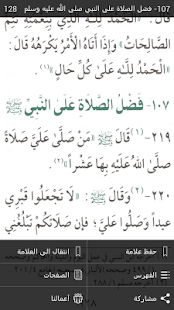 107- فضل الصلاة على النبي صلى الله عليه وسلم 128
الصَّالِحَاتُ» وَإِذَا أَتَاهُ الأَمْرُ يَكْرَهُهُ قَالَ:
«الْحَمْدُ لِلَّهِ عَلَى كُلِّ حَالٍ».
١٠٧- فَضْلُ الصَّلَاةِ عَلَى النَّبِيِّ ﷺ
٢١٩- (١) قَالَ ﷺ: «مَنْ صَلَّى عَلَيَّ صَلَاةً
صَلَّى اللَّهُ عَلَيْهِ بِهَا عَشْراً».
٢٢٠- (٢) وَقَالَ ﷺ: «لَا تَجْعَلُوا قَبْرِي
عِيداً وَصَلُّوا عَلَيَّ؛ فَإِنَّ صَلَاتَكُمْ تَبْلُغُنِي
حفظ علامة
انتقال الى العلامة
الفهرس
الصفحات
مشاركة
أعمالنا